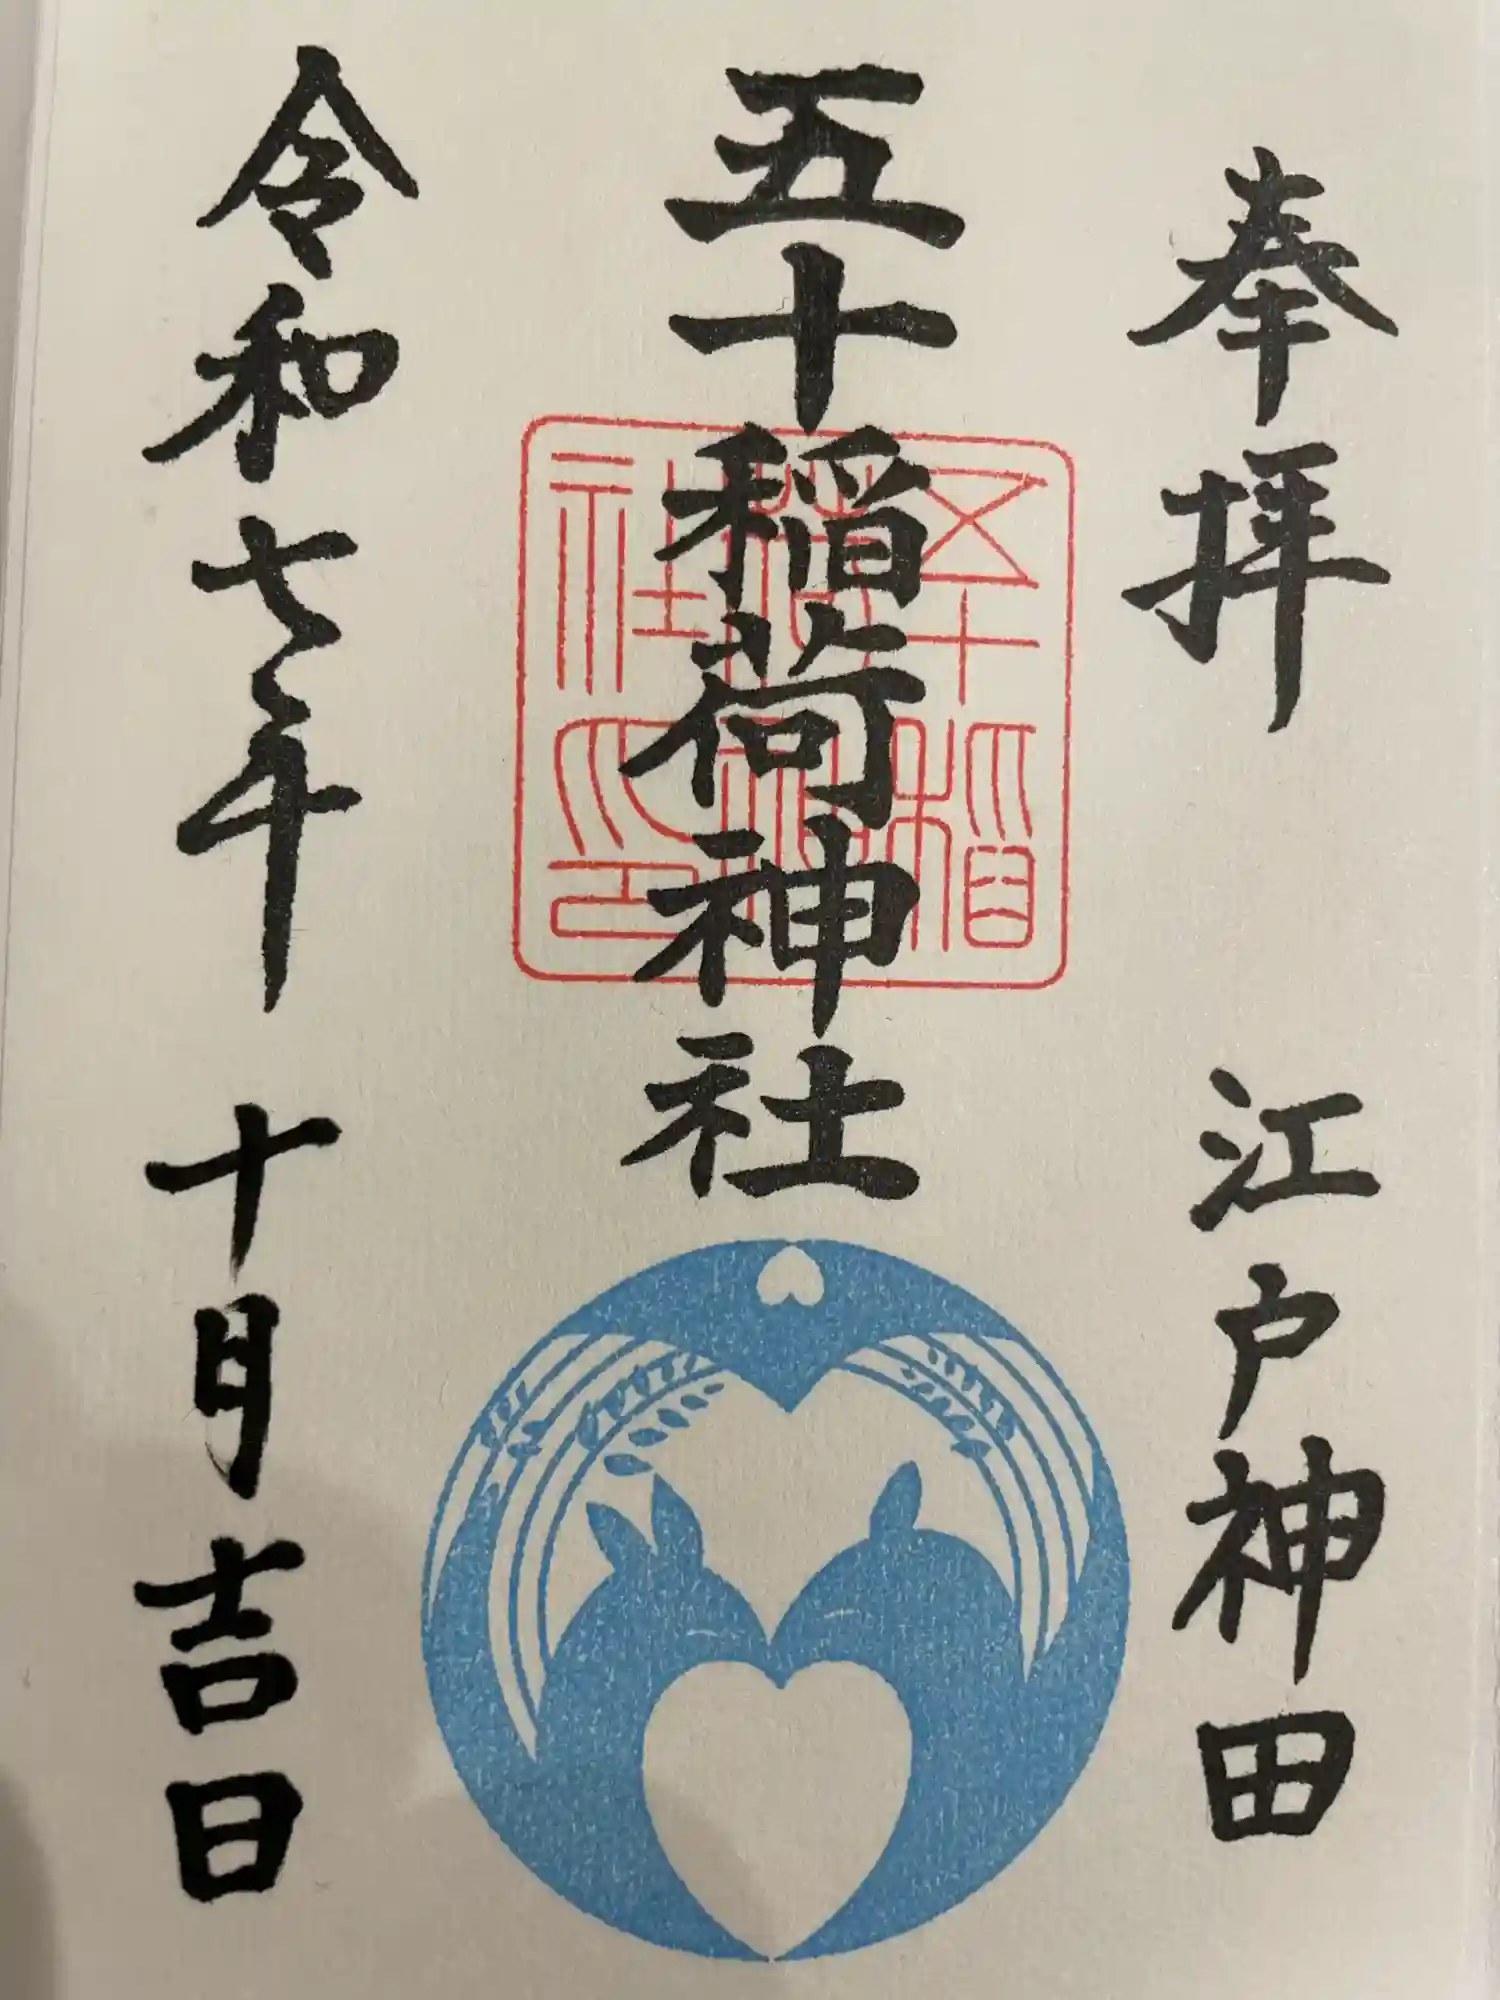 奉拝 江戸神田
五十稲荷神社
五十稲荷神社印
令和七年 十月吉日